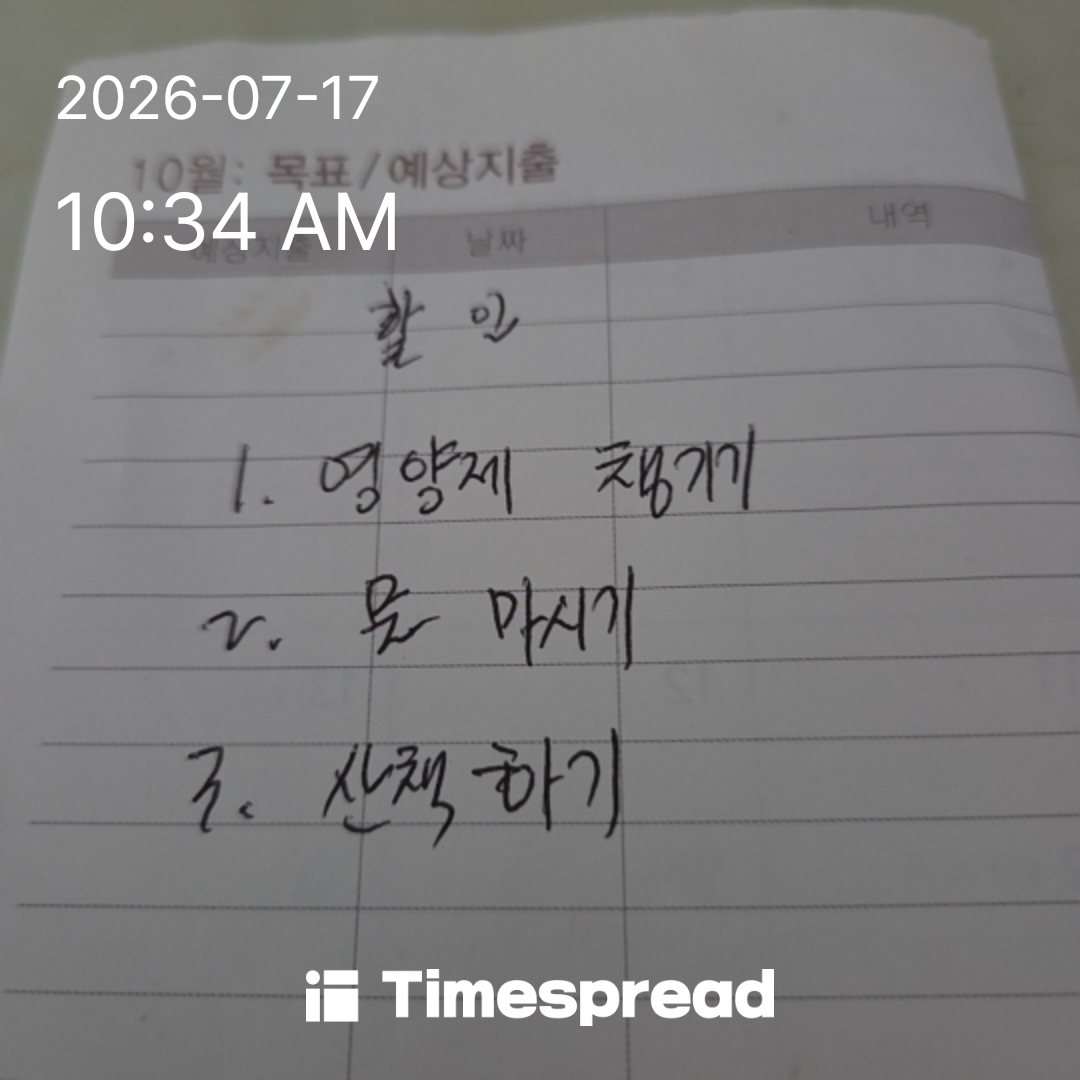 2026-07-17
10월: 목표/예상지출
10:34 AM
예상지출 날짜 내역
할 인
1. 영양제 챙기기
2. 물 마시기
3. 산책하기
Timespread